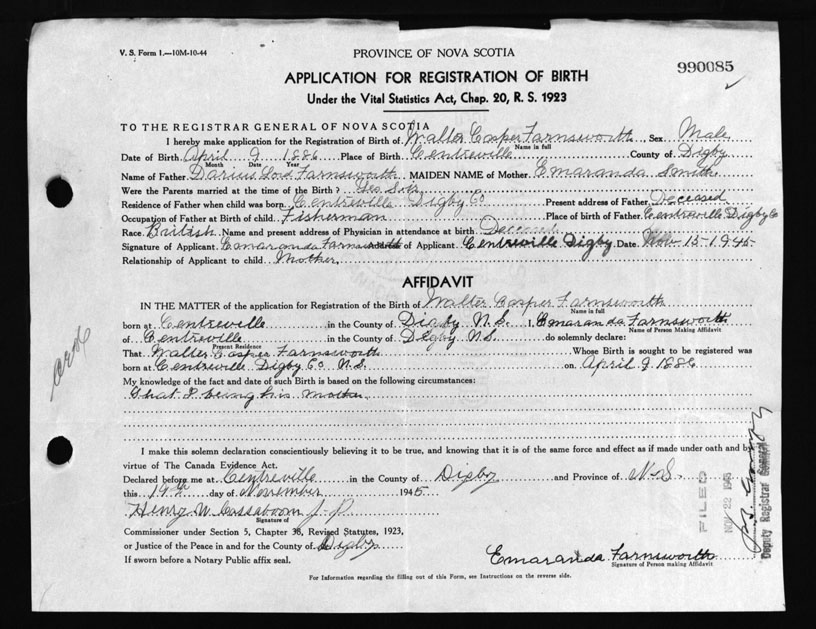 V. S. Form 1.—10M-10-44
PROVINCE OF NOVA SCOTIA
990085
APPLICATION FOR REGISTRATION OF BIRTH
Under the Vital Statistics Act, Chap. 20, R. S. 1923
TO THE REGISTRAR GENERAL OF NOVA SCOTIA
I hereby make application for the Registration of Birth of Walter Casper Farnsworth Sex Male
Name in full
Date of Birth April 9 1886 Place of Birth Centreville County of Digby
Month Date Year
Name of Father Darius Farnsworth MAIDEN NAME of Mother Emaranda Smith
Were the Parents married at the time of Birth? Yes Sir
Residence of Father when child was born Centreville Digby Co Present address of Father Deceased
Occupation of Father at Birth of child Fisherman Place of birth of Father Centreville Digby Co
Race British Name and present address of Physician in attendance at birth Deceased
Signature of Applicant Emaranda Farnsworth Address of Applicant Centreville Digby Date Nov 15-1945
Relationship of Applicant to child Mother
AFFIDAVIT
IN THE MATTER of the application for Registration of the Birth of Walter Casper Farnsworth
Name in full
born at Centreville in the County of Digby N.S. I, Emaranda Farnsworth
Name of Person Making Affidavit
of Centreville in the County of Digby N.S. do solemnly declare:
Present Residence
That Walter Casper Farnsworth Whose Birth is sought to be registered was
born at Centreville Digby Co N.S. on April 9 1886
My knowledge of the fact and date of such Birth is based on the following circumstances:
That I being his Mother
I make this solemn declaration conscientiously believing it to be true, and knowing that it is of the same force and effect as if made under oath and by
virtue of The Canada Evidence Act.
Declared before me at Centreville in the County of Digby and Province of N.S.
this 19th day of November 1945
Henry W Cossaboom J.P.
Signature of
Commissioner under Section 5, Chapter 38, Revised Statutes, 1923,
or Justice of the Peace in and for the County of Digby
If sworn before a Notary Public affix seal.
Emaranda Farnsworth
Signature of Person making Affidavit
For Information regarding the filling out of this Form, see Instructions on the reverse side.
FILED
NOV 22 1945
Deputy Registrar General